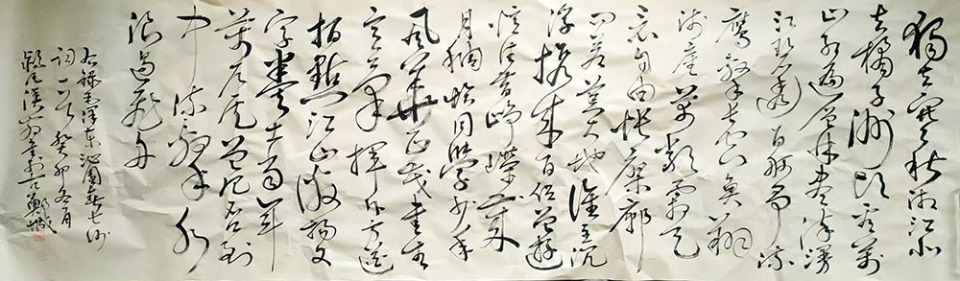 独立寒秋湘江北
去橘子洲头看万
山红遍层林尽染漫
江碧透百舸争流
鹰击长空鱼翔
浅底万类霜天
竞自由怅寥廓
问苍茫大地谁主沉
浮携来百侣曾游
忆往昔峥嵘岁
月稠恰同学少年
风华正茂书生
意气挥斥方遒
指点江山激扬文
字粪土当年
万户侯曾记否到
中流击水
浪遏飞舟
右录毛泽东沁园春长沙
词一首癸卯冬月